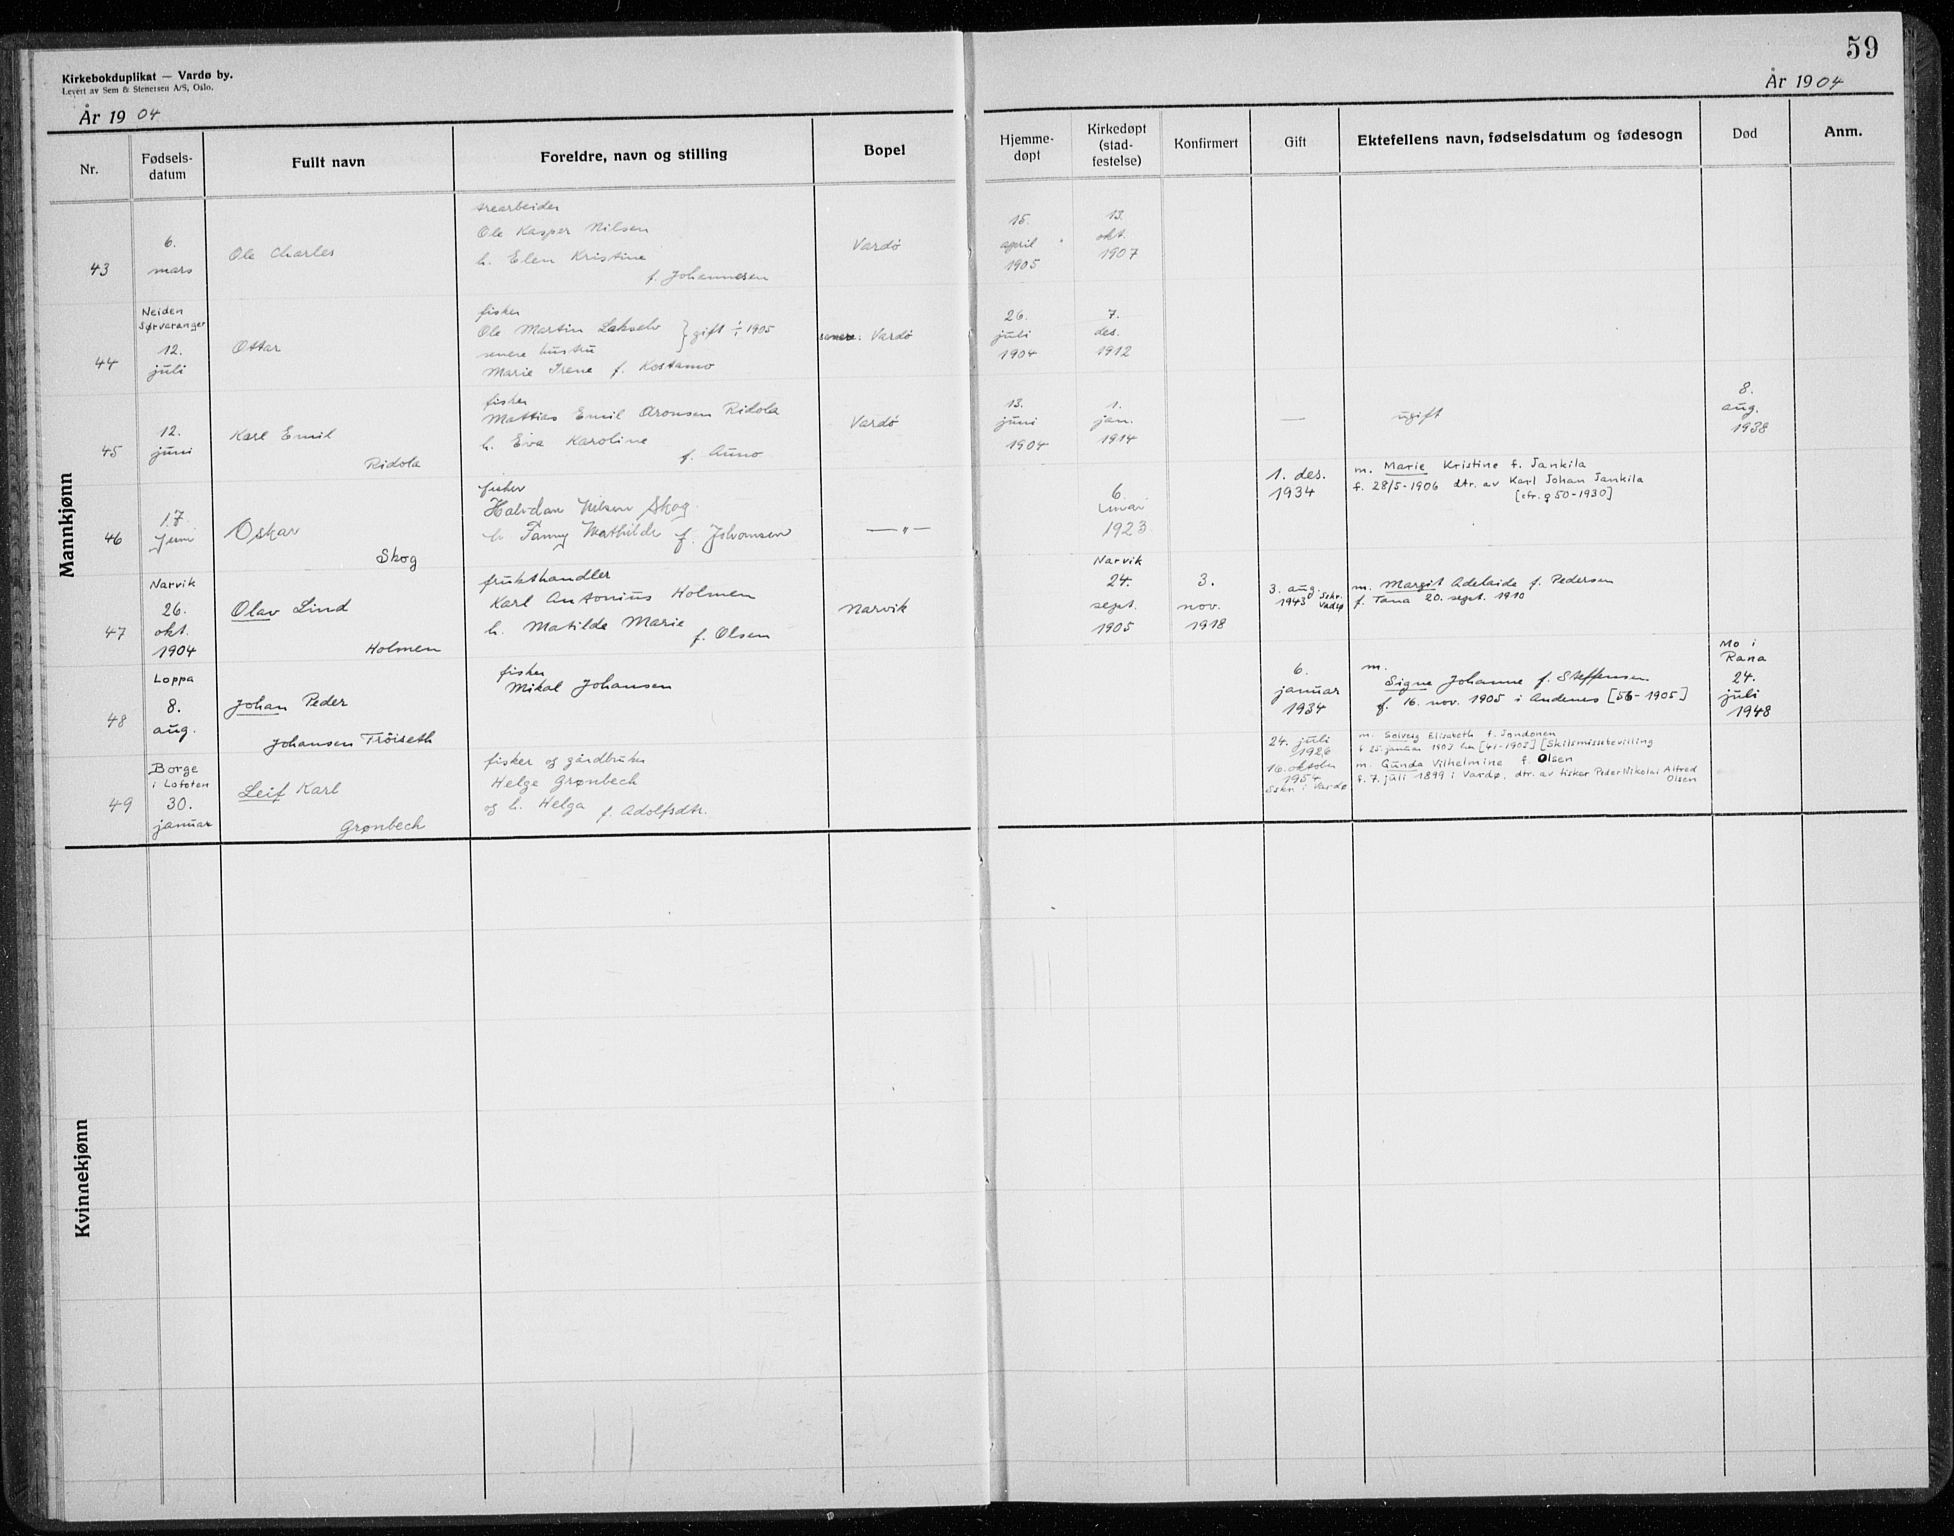 Kirkebokduplikat — Vardø by.
Levert av Sem & Stenersen A/S, Oslo.
År 1904
59
År 1904
Nr.
Fødsels-
datum
Fullt navn
Foreldre, navn og stilling
Bopel
Hjemme-
døpt
Kirkedøpt
(stad-
festelse)
Konfirmert
Gift
Ektefellens navn, fødselsdatum og fødesogn
Død
Anm.
Mannkjønn
43
6.
mars
Ole Charles
trearbeider
Ole Kasper Nilsen
h. Elen Kristine
f. Johannesen
Vardø
15.
april
1905
13.
okt.
1907
44
Neiden
Sørvaranger
12.
juli
Ottar
fisker
Ole Martin Lakselv } gift 1/1 1905
senere hustru
Marie Irene f. Kostamo
senere: Vardø
26.
juli
1904
7.
des.
1912
45
12.
juni
Karl Emil
Ridola
fisker
Mattias Emil Aronsen Ridola
h. Eva Karoline
f. Auno
Vardø
13.
juni
1904
1.
jan.
1914
—
ugift
8.
aug.
1938
46
17
Juni
Oskar
Skog
fisker
Halvdan Nilsen Skog
h Fanny Mathilde f. Johansen
— " —
6.
1923
1. des.
1934
m. Marie Kristine f. Jankila
f. 28/5-1906 dtr. av Karl Johan Jankila
[cfr. q 50-1930]
47
Narvik
26.
okt.
1904
Olav Lind
Holmen
frukthandler
Karl Antonius Holmen
h. Matilde Marie
f. Olsen
Narvik
Narvik
24.
sept.
1905
3.
nov.
1918
3. aug.
1943 Sskr. Vadsø
m. Margit Adelaide f. Pedersen
f. Tana 20. sept. 1910
48
Loppa
8.
aug.
Johan Peder
Johansen Trøiseth
fisker
Mikal Johansen
6.
januar
1934
m.
Signe Johanne f. Steffensen
f. 16. nov. 1905 i Andenes [56-1905]
Mo i
Rana
24.
juli
1948
49
Borge
i Lofoten
30.
januar
Leif Karl
Grønbech
fisker og gårdbruker
Helge Grønbech
og h. Helga f. Adolfsdtr.
24. juli
1926
16. oktober
1954
Sskr. i Vardø
m. Solveig Elisabeth f. Jondonen
f. 25. januar 1903 her [41-1903] [Skilsmissebevilling
m. Gunda Vilhelmine f. Olsen
f. 7. juli 1899 i Vardø, dtr. av fisker Peder Nikolai Alfred
Olsen
Kvinnekjønn